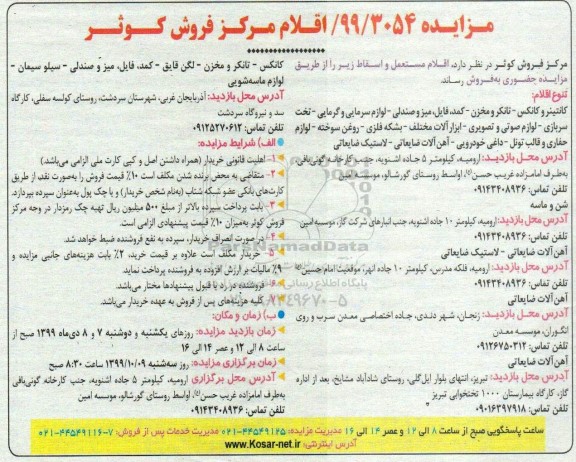 مزایده ۹۹/۳۰۵۴/ اقلام مرکز فروش کوثر
مرکز فروش کوثر در نظر دارد، اقلام مستعمل و اسقاط زیر را از طریق
مزایده حضوری به‌فروش رساند.
تنوع اقلام:
کانتینر و کانکس - تانکر و مخزن - کمد، فایل، میز و صندلی - لوازم سرمایی و گرمایی - تخت
سربازی - لوازم صوتی و تصویری - ابزارآلات مختلف - بشکه فلزی - روغن سوخته - لوازم
حفاری و قالب تونل - داغی خودرویی - آهن‌آلات ضایعاتی - لاستیک ضایعاتی
آدرس محل بازدید: ارومیه، کیلومتر ۵ جاده اشنویه، جنب کارخانه گونی‌بافی
به‌طرف امامزاده غریب حسن(ع)، اواسط روستای گورشالو، موسسه امین
تلفن تماس: ۰۹۱۴۳۴۰۸۹۳۶
شن و ماسه
آدرس محل بازدید: ارومیه، کیلومتر ۱۰ جاده اشنویه، جنب انبارهای شرکت گاز، موسسه امین
تلفن تماس: ۰۹۱۴۳۴۰۸۹۳۶
آهن آلات ضایعاتی - لاستیک ضایعاتی
آدرس محل بازدید: ارومیه، فلکه مدرس، کیلومتر ۱۰ جاده انهر، موقعیت امام حسین(ع)
تلفن تماس: ۰۹۱۴۳۴۰۸۹۳۶
آهن آلات ضایعاتی
آدرس محل بازدید: زنجان، شهر دندی، جاده اختصاصی معدن سرب و روی
انگوران، موسسه معدن
تلفن تماس: ۰۹۱۲۶۷۵۰۳۱۲
آهن‌آلات ضایعاتی
آدرس محل بازدید: تبریز، انتهای بلوار ایل‌گلی، روستای شادآباد مشایخ، بعد از اداره
گاز، کارگاه بیمارستان ۱۰۰۰ تختخوابی تبریز
تلفن تماس: ۰۹۰۱۶۳۹۷۹۱۸
کانکس - تانکر و مخزن - لگن قایق - کمد، فایل، میز و صندلی - سیلو سیمان -
لوازم ماسه‌شویی
آدرس محل بازدید: آذربایجان غربی، شهرستان سردشت، روستای کولسه سفلی، کارگاه
سد و نیروگاه سردشت
تلفن تماس: ۰۹۱۲۵۲۷۰۶۱۲
الف) شرایط مزایده:
۱- اهلیت قانونی خریدار (همراه داشتن اصل و کپی کارت ملی الزامی می‌باشد)
۲- متقاضی به محض برنده شدن مکلف است ۱۰٪ قیمت فروش را به‌صورت نقد از طریق
کارت‌های بانکی عضو شبکه شتاب (به‌نام شخص خریدار) و یا چک پول به‌عنوان سپرده بپردازد.
۳- بابت پرداخت سپرده بالاتر از مبلغ ۵۰۰ میلیون ریال تهیه چک رمزدار در وجه مرکز
فروش کوثر به‌میزان ۱۰٪ قیمت پیشنهادی الزامی است.
۴- در صورت انصراف خریدار، سپرده به نفع فروشنده ضبط خواهد شد.
۵- خریدار مکلف است علاوه بر قیمت خرید، ۲٪ بابت هزینه‌های جانبی مزایده و
۹٪ مالیات بر ارزش افزوده به فروشنده پرداخت نماید.
۶- فروشنده در رد یا قبول پیشنهادها مختار می‌باشد.
۷- کلیه هزینه‌های پس از فروش به عهده خریدار می‌باشد.
ب) زمان و مکان:
زمان بازدید مزایده: روزهای یکشنبه و دوشنبه ۷ و ۸ دی‌ماه ۱۳۹۹ از صبح
ساعت ۸ الی ۱۲ و عصر ۱۴ الی ۱۶
زمان برگزاری مزایده: روز سه‌شنبه ۱۳۹۹/۱۰/۰۹ ساعت ۸:۳۰ صبح
آدرس محل برگزاری: ارومیه، کیلومتر ۵ جاده اشنویه، جنب کارخانه گونی‌بافی
به‌طرف امامزاده غریب حسن(ع)، اواسط روستای گورشالو، موسسه امین
تلفن تماس: ۰۹۱۴۳۴۰۸۹۳۶
ساعت پاسخگویی صبح از ساعت ۸ الی ۱۲ و عصر ۱۴ الی ۱۶ مدیریت مزایده: ۴۴۵۴۹۱۲۵-۰۲۱ مدیریت خدمات پس از فروش: ۷-۴۴۵۴۹۱۱۶-۰۲۱
آدرس اینترنتی: www.Kosar-net.ir
ParsNamadData